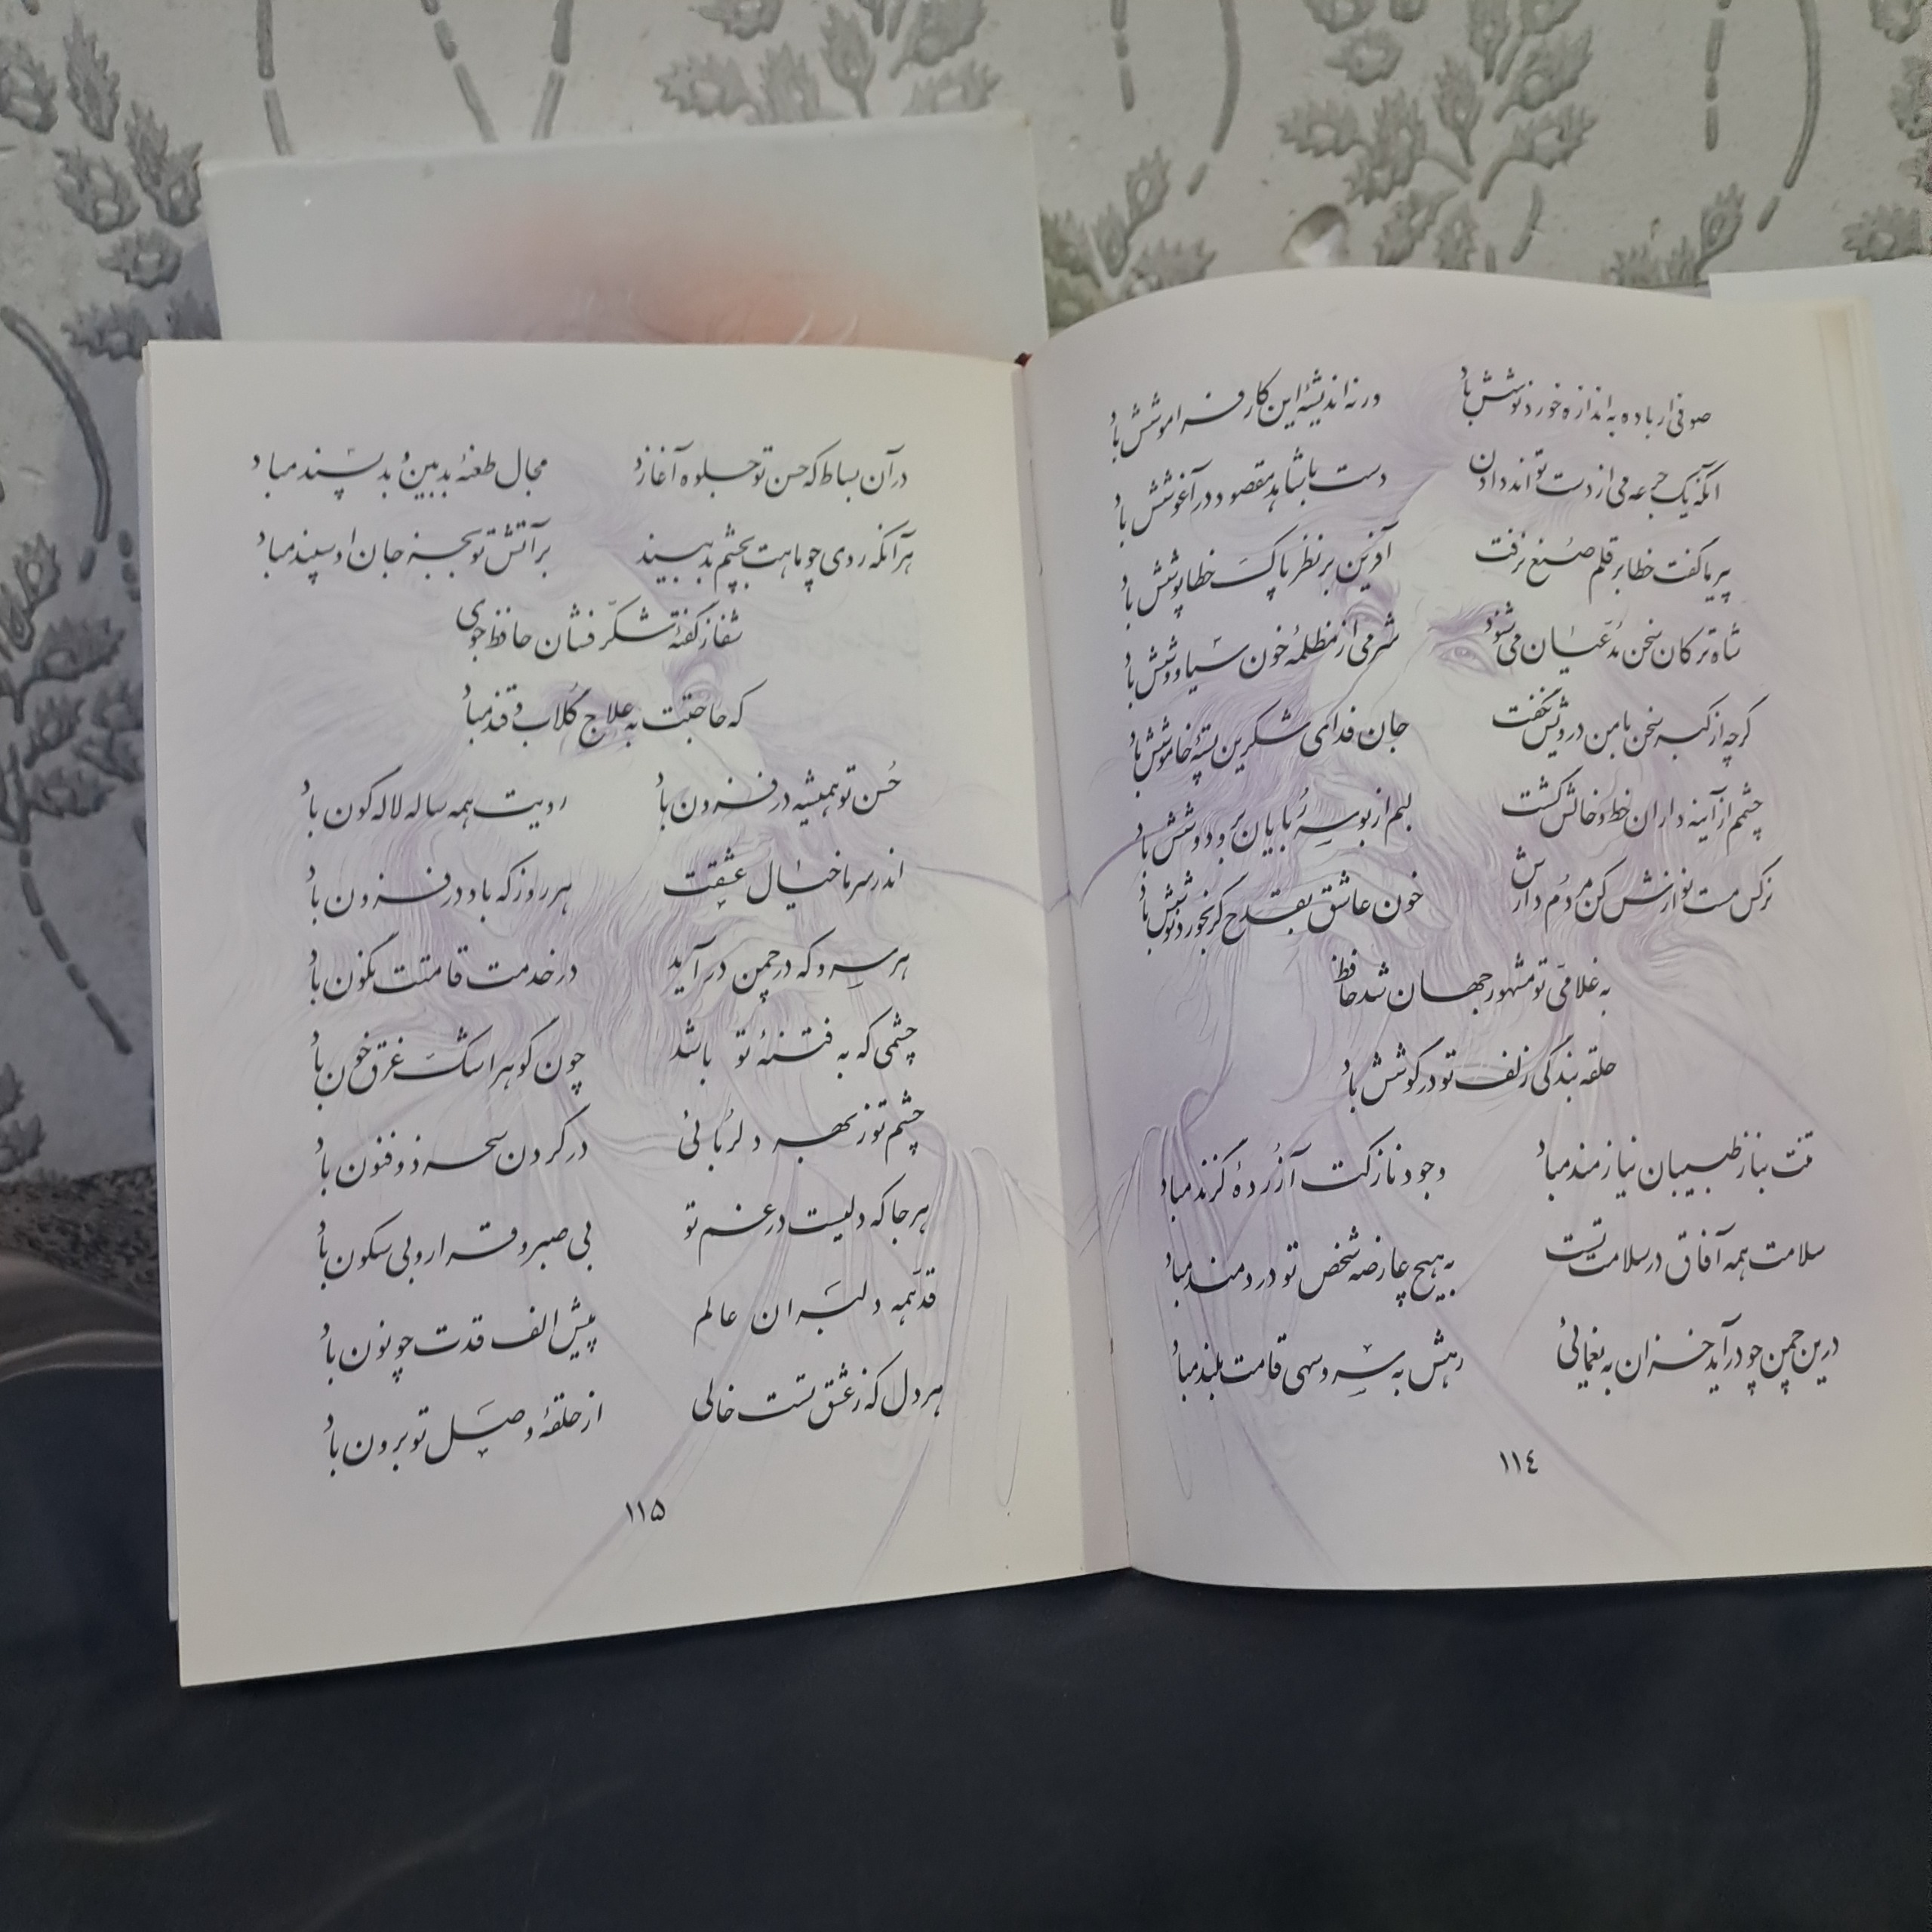 صوفی ار باده به اندازه خورد نوشش باد ورنه اندیشهٔ این کار فراموشش باد
آنکه یک جرعه می از دست تواند دادن دست با شاهد مقصود در آغوشش باد
پیر ما گفت خطا بر قلم صنع نرفت آفرین بر نظر پاک خطاپوشش باد
شاه ترکان سخن مدعیان می‌شنود شرمی از مظلمهٔ خون سیاووشش باد
گرچه از کبر سخن با من درویش نگفت جان فدای شکرین پستهٔ خاموشش باد
چشمم از آینه داران خط و خالش گشت لبم از بوسه ربایان بر و دوشش باد
نرگس مست نوازش کن مردم دارش خون عاشق بقدح گر بخورد نوشش باد
به غلامی تو مشهور جهان شد حافظ
حلقه بندگی زلف تو در گوشش باد
تنت بناز طبیبان نیازمند مباد وجود نازکت آزردهٔ گزند مباد
سلامت همه آفاق در سلامت تست به هیچ عارضه شخص تو دردمند مباد
درین چمن چو درآید خزان به یغمائی رهش به سرو سهی قامت بلند مباد
۱۱٤
در آن بساط که حسن تو جلوه آغازد مجال طعنهٔ بدبین و بدپسند مباد
هر آنکه روی چو ماهت بچشم بد بیند بر آتش تو بجز جان او سپند مباد
شفا ز گفتهٔ شکرفشان حافظ جوی
که حاجتت به علاج گلاب و قند مباد
حسن تو همیشه در فزون باد رویت همه ساله لاله گون باد
اندر سر ما خیال عشقت هر روز که باد در فزون باد
هر سرو که در چمن درآید در خدمت قامتت نگون باد
چشمی که به فتنهٔ تو باشد چون گوهر اشک غرق خون باد
چشم تو ز بهر دلربائی در کردن سحر ذوفنون باد
هر جا که دلیست در غم تو بی صبر و قرار و بی سکون باد
قد همه دلبران عالم پیش الف قدت چو نون باد
هر دل که ز عشق تست خالی از حلقهٔ وصل تو برون باد
۱۱۵